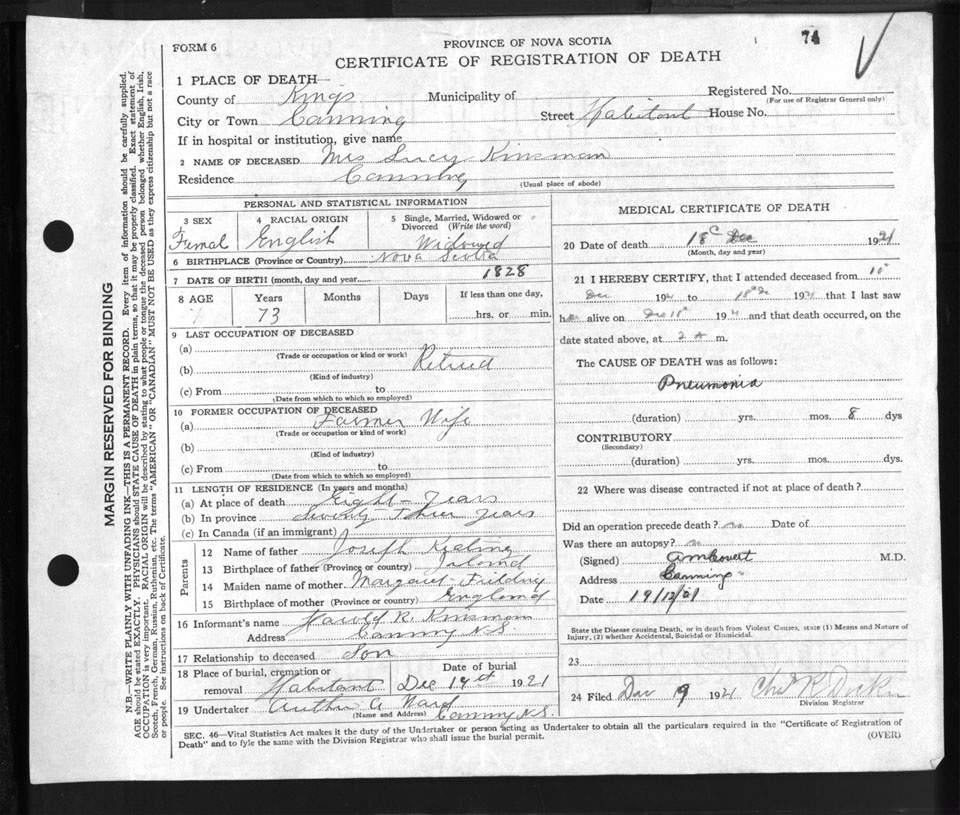 74
FORM 6
PROVINCE OF NOVA SCOTIA
CERTIFICATE OF REGISTRATION OF DEATH
1 PLACE OF DEATH
County of Kings Municipality of Registered No.
(For use of Registrar General only)
City or Town Canning Street Habitant House No.
If in hospital or institution, give name
2 NAME OF DECEASED Mrs Lucy Kinsman
Residence Canning
(Usual place of abode)
PERSONAL AND STATISTICAL INFORMATION
3 SEX 4 RACIAL ORIGIN 5 Single, Married, Widowed or Divorced (Write the word)
Femal English Widowed
6 BIRTHPLACE (Province or Country) Nova Scotia
7 DATE OF BIRTH (month, day and year) 1828
8 AGE Years Months Days If less than one day,
73 hrs. or min.
9 LAST OCCUPATION OF DECEASED
(a)
(Trade or occupation or kind or work)
(b) Retired
(Kind of industry)
(c) From to
(Date from which to which so employed)
10 FORMER OCCUPATION OF DECEASED
(a) Farmer Wife
(Trade or occupation or kind of work)
(b)
(Kind of industry)
(c) From to
(Date from which to which so employed)
11 LENGTH OF RESIDENCE (In years and months)
(a) At place of death Eight Years
(b) In province Seventy Three Years
(c) In Canada (if an immigrant)
Parents
12 Name of father Joseph
13 Birthplace of father (Province or country)
14 Maiden name of mother Margaret
15 Birthplace of mother (Province or country) England
16 Informant's name Harold R. Kinsman
Address N S
17 Relationship to deceased Son
18 Place of burial, cremation or removal Habitant Date of burial Dec 19 1921
19 Undertaker Arthur A Ward
(Name and Address) N.S.
MEDICAL CERTIFICATE OF DEATH
20 Date of death 18 Dec 1921
(Month, day and year)
21 I HEREBY CERTIFY, that I attended deceased from 10
Dec 192 to 18 192 that I last saw
h alive on Dec 18 192 and that death occurred, on
date stated above, at 2 A m.
The CAUSE OF DEATH was as follows:
Pneumonia
(duration) yrs. mos. 8 dys
CONTRIBUTORY
(Secondary)
(duration) yrs. mos. dys.
22 Where was disease contracted if not at place of death?
Did an operation precede death? no Date of
Was there an autopsy? no
(Signed) M.D.
Address Canning
Date 19/12/21
State the Disease causing Death, or in death from Violent Causes, state (1) Means and Nature of
Injury, (2) whether Accidental, Suicidal or Homicidal.
23
24 Filed 9 192
Division Registrar
SEC. 46—Vital Statistics Act makes it the duty of the Undertaker or person acting as Undertaker to obtain all the particulars required in the "Certificate of Registration of
Death" and to fyle the same with the Division Registrar who shall issue the burial permit.
(OVER)
MARGIN RESERVED FOR BINDING
N.B.—WRITE PLAINLY WITH UNFADING INK—THIS IS A PERMANENT RECORD. Every item of information should be carefully supplied.
AGE should be stated EXACTLY. PHYSICIANS should STATE CAUSE OF DEATH in plain terms, so that it may be properly classified. Exact statement of
OCCUPATION is very important. RACIAL ORIGIN will be described by stating to what people or tongue the deceased person belonged whether English, Irish,
Scotch, French, German, Russian, Ruthenian, etc. The terms "AMERICAN" OR "CANADIAN" MUST NOT BE USED as they express citizenship but not a race
or people. See instructions on back of Certificate.